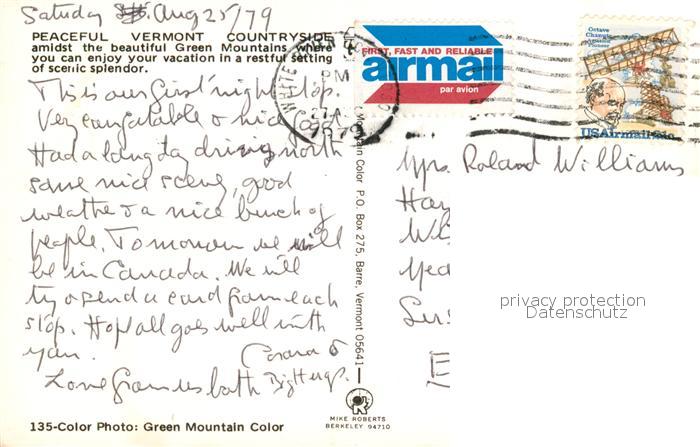 Satuday Aug 25/79
PEACEFUL VERMONT COUNTRYSIDE
amidst the beautiful Green Mountains where
you can enjoy your vacation in a restful setting
of scenic splendor.
This is our first night stop.
Very comfortable & nice food.
Had a long day driving north
some nice scenery, good
weather & a nice bunch of
people. Tomorrow we will
be in Canada. We will
try & send a card from each
stop. Hope all goes well with
you.
Love from us both Big Hugs.
135-Color Photo: Green Mountain Color
Mountain Color P.O. Box 275, Barre, Vermont 05641
MIKE ROBERTS
BERKELEY 94710
WHITE
PM
1979
FIRST, FAST AND RELIABLE
airmail
par avion
Octave
Chanute
Aviation
Pioneer
USAirmail
Mrs. Roland Williams
Hay
E
privacy protection
Datenschutz